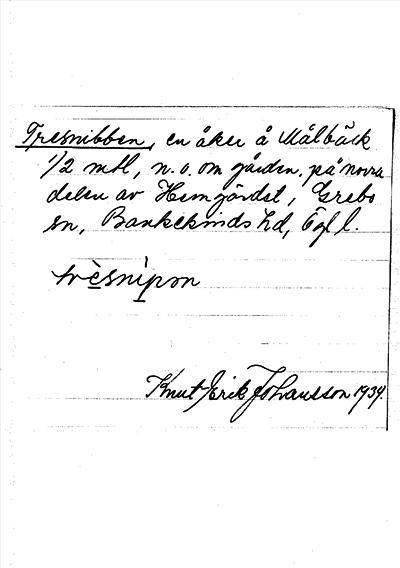 Tresnibben, en åker å Målbäck
1/2 mtl, n. o. om gården, på norra
delen av Hemgärdet, Grebo
sn, Bankekinds hd, Ögl l.
trèsnìpon
Knut Erik Johansson 1934.